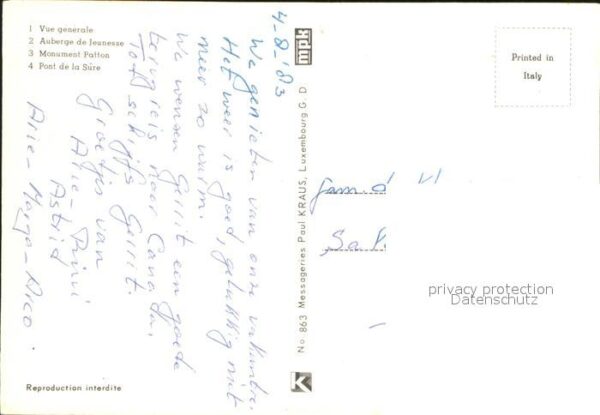 1 Vue generale
2 Auberge de Jeunesse
3 Monument Patton
4 Pont de la Sûre
4-8-'83
We genieten van onze vakantie.
Het weer is goed, gelukkig niet
meer zo warm.
We wensen Gerrit een goede
terugreis naar Canada.
Tot schrijfs Gerrit.
Groetjes van
Arie-, Rini
Astrid
Arie-Marga-Nico.
Reproduction interdite
mpk
No. 863 Messageries Paul KRAUS, Luxembourg G. D
K
Printed in
Italy
Fam.
privacy protection
Datenschutz